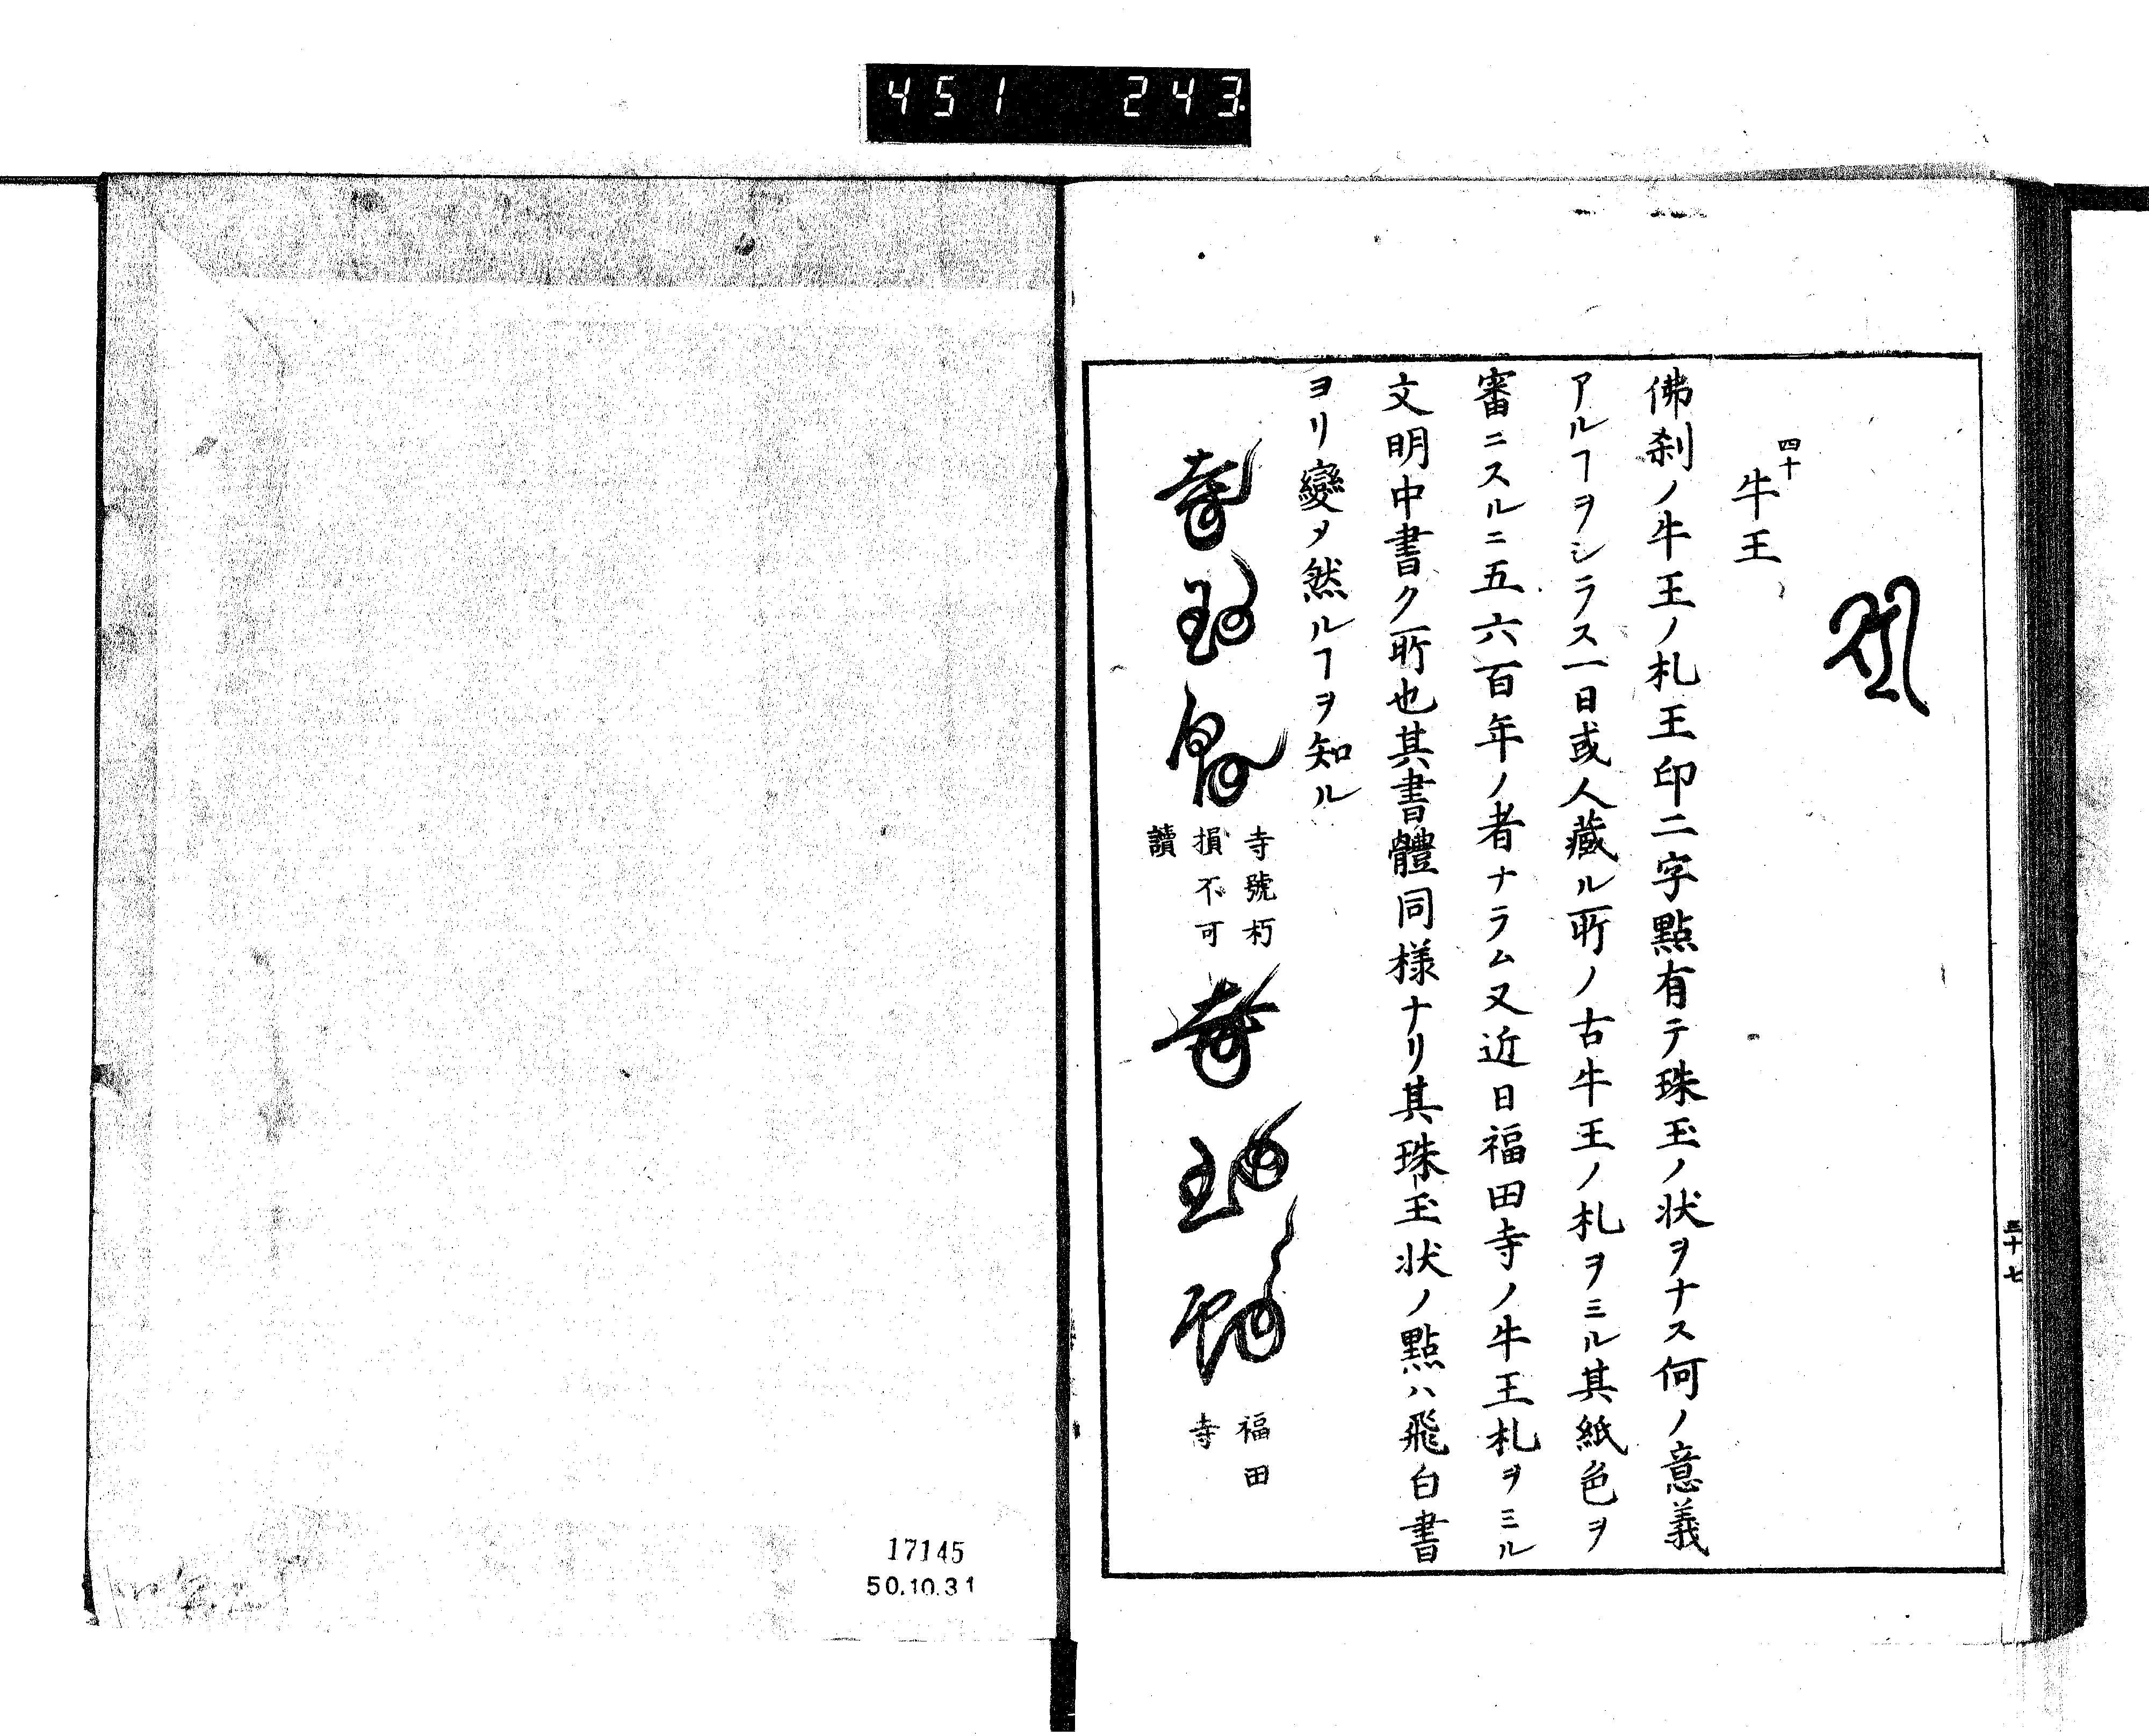 451 243
四十
牛王
佛刹ノ牛王ノ札王印二字點有テ珠玉ノ状ヲナス何ノ意義
アルヿヲシラス一日或人藏ル所ノ古牛王ノ札ヲミル其紙色ヲ
審ニスルニ五六百年ノ者ナラム又近日福田寺ノ牛王札ヲミル
文明中書ク所也其書體同様ナリ其珠玉状ノ點ハ飛白書
ヨリ變〆然ルヿヲ知ル
寺號朽
損不可
讀
福田
寺
三十七
17145
50.10.31